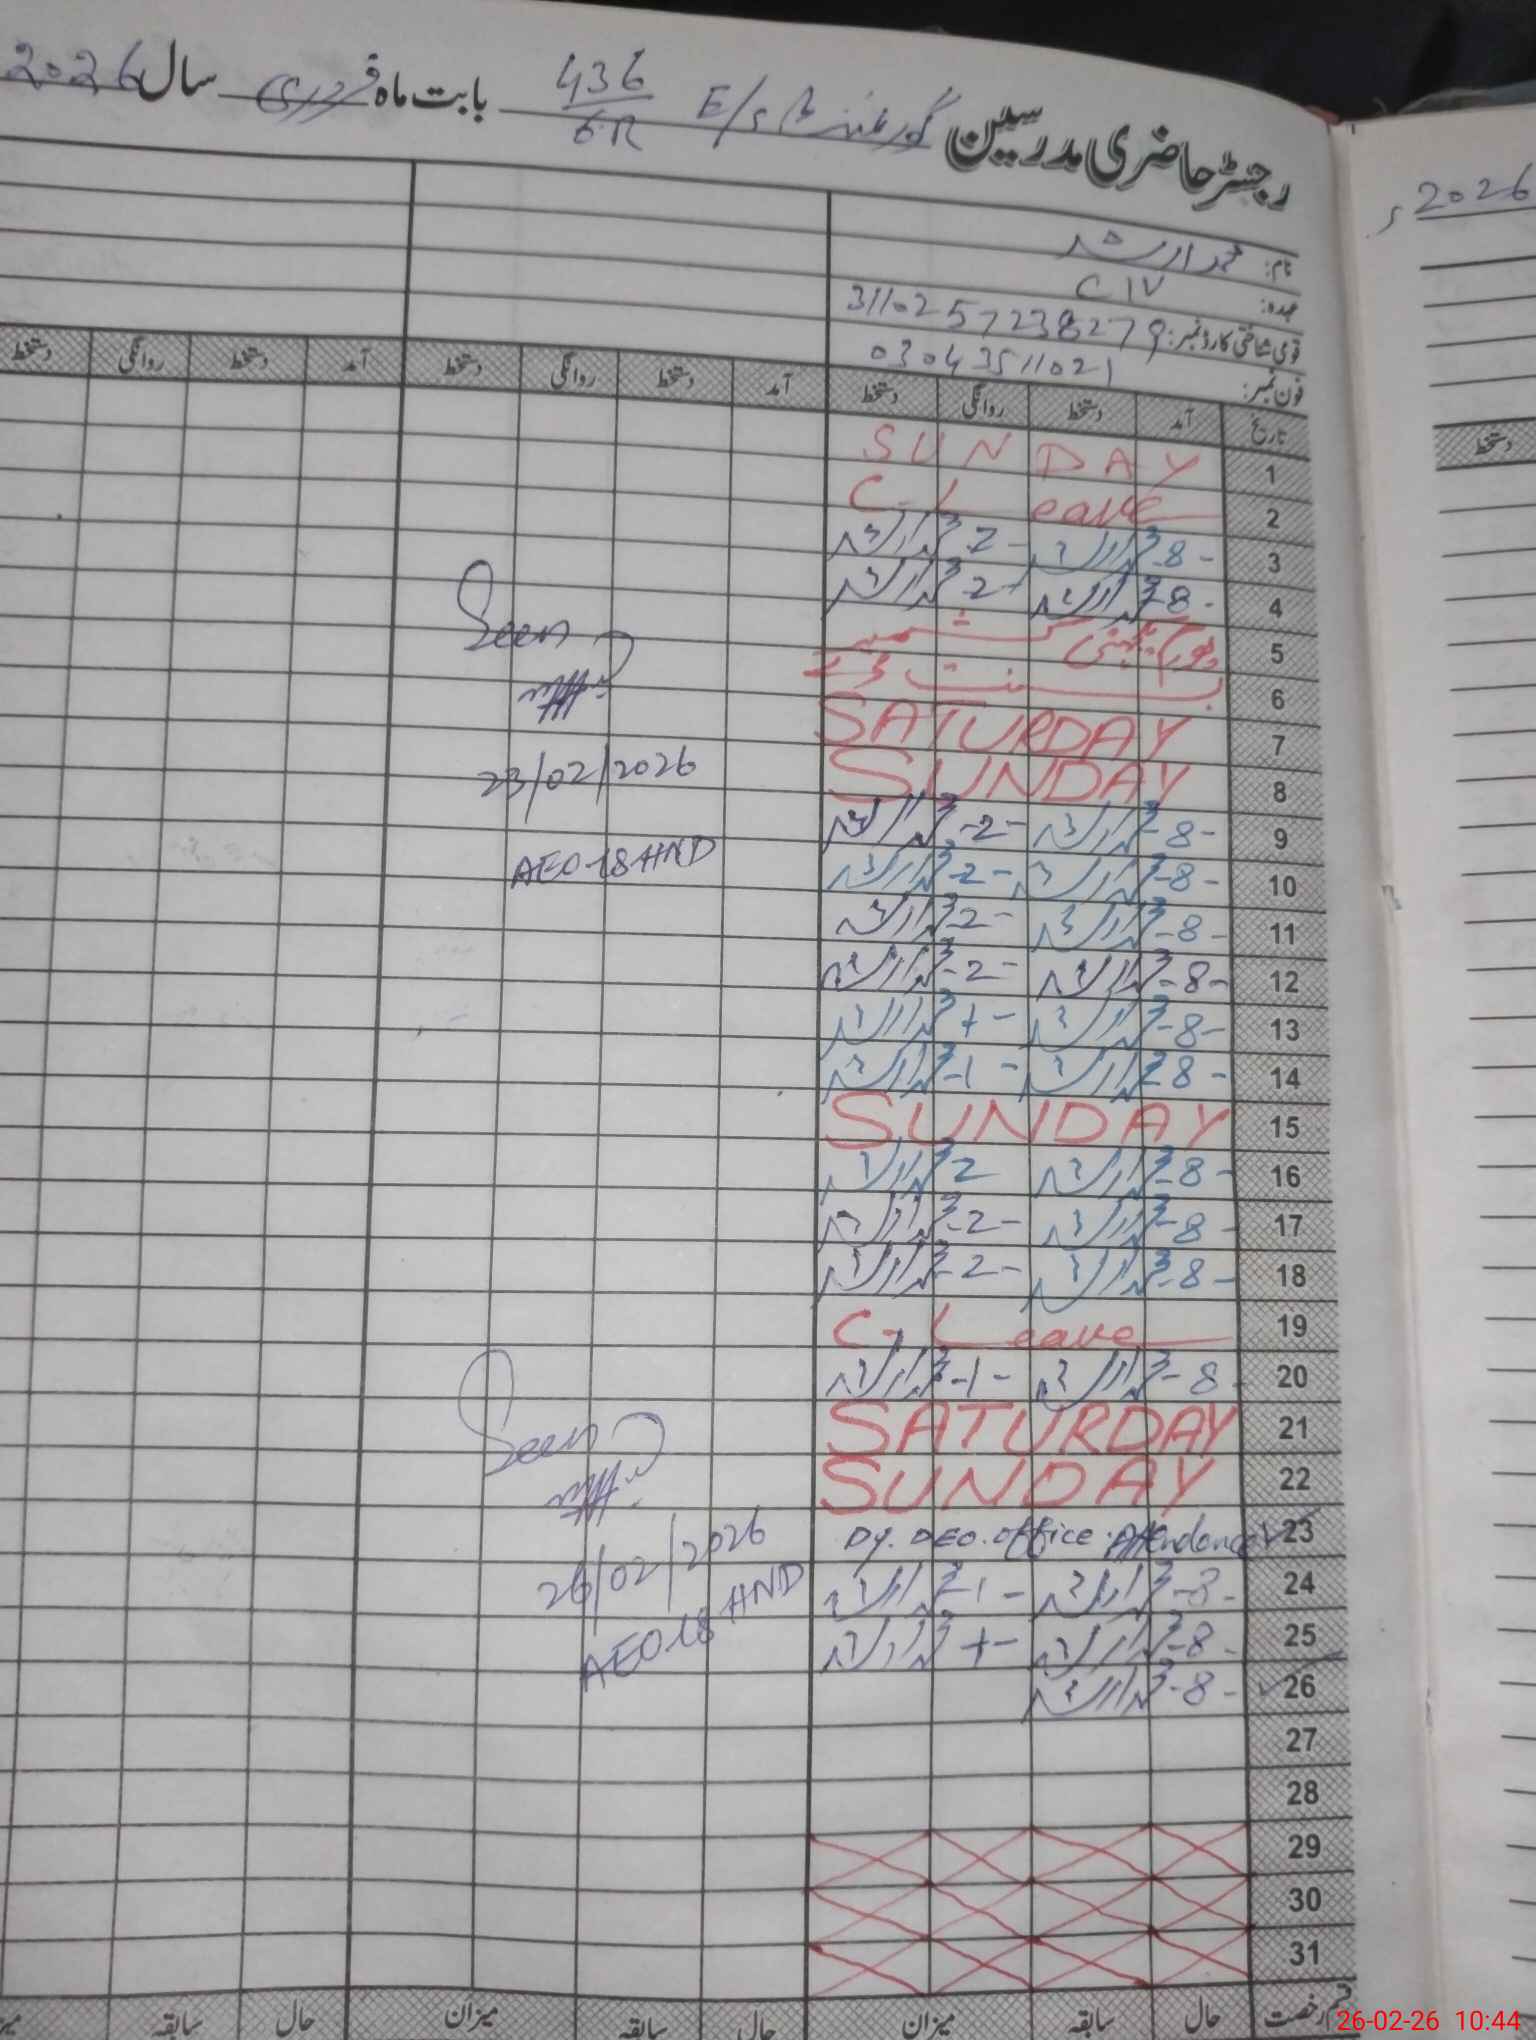 رجسٹر حاضری مدرسین گورنمنٹ E/S 436/6R بابت ماہ فروری سال 2026
2026
نام: محمد ارشد
عہدہ: C IV
قومی شناختی کارڈ نمبر: 3110257238279
فون نمبر: 03043511021
تاریخ آمد دستخط روانگی دستخط آمد دستخط روانگی دستخط آمد دستخط روانگی دستخط
دستخط
1 SUNDAY
2 C-Leave
3 -8- محمد ارشد -2- محمد ارشد
4 -8- محمد ارشد -2- محمد ارشد
5 یوم یکجہتی کشمیر
6 بسنت
7 SATURDAY
8 SUNDAY
9 -8- محمد ارشد -2- محمد ارشد
10 -8- محمد ارشد -2- محمد ارشد
11 -8- محمد ارشد -2- محمد ارشد
12 -8- محمد ارشد -2- محمد ارشد
13 -8- محمد ارشد -1- محمد ارشد
14 -8- محمد ارشد -1- محمد ارشد
15 SUNDAY
16 -8- محمد ارشد 2 محمد ارشد
17 -8- محمد ارشد -2- محمد ارشد
18 -8- محمد ارشد -2- محمد ارشد
19 C-Leave
20 -8- محمد ارشد -1- محمد ارشد
21 SATURDAY
22 SUNDAY
23 Dy. DEO. office Attendance
24 -8- محمد ارشد -1- محمد ارشد
25 -8- محمد ارشد -1- محمد ارشد
26 -8- محمد ارشد
27
28
29
30
31
Seen
23/02/2026
AEO-18 HND
Seen
26/02/2026
AEO-18 HND
قسم رخصت حال سابقہ میزان حال سابقہ میزان حال سابقہ
26-02-26 10:44